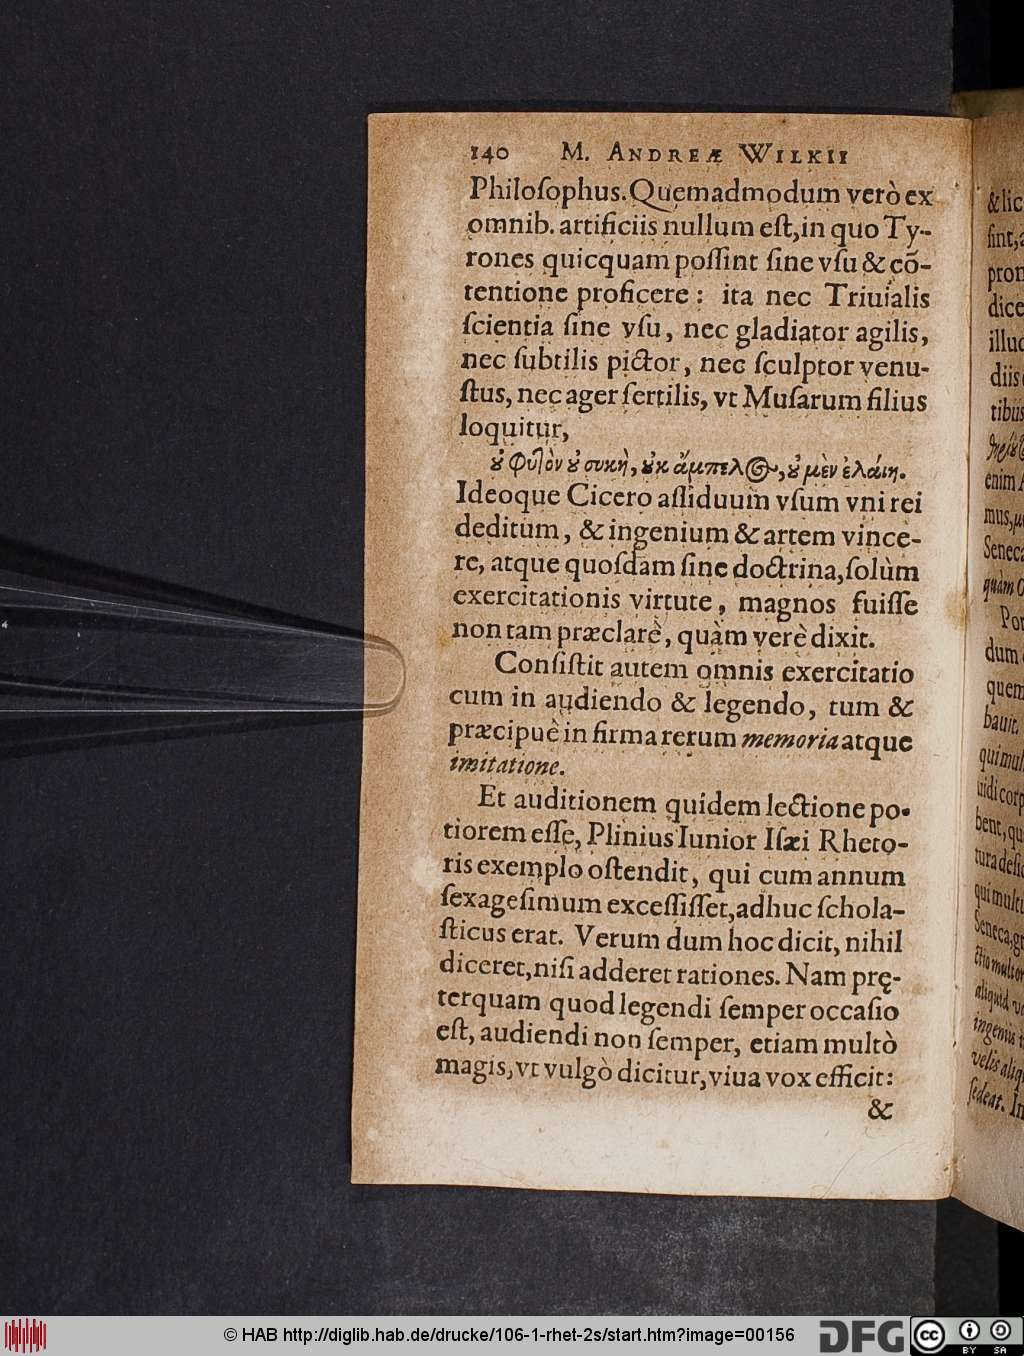 140 M. ANDREÆ WILKII
Philoſophus. Quemadmodum verò ex
omnib. artificiis nullum eſt, in quo Ty-
rones quicquam poſſint ſine vſu & cō-
tentione proficere: ita nec Triuialis
ſcientia ſine vſu, nec gladiator agilis,
nec ſubtilis pictor, nec ſculptor venu-
ſtus, nec ager fertilis, vt Muſarum filius
loquitur,
ȣ φυτὸν ȣ συκὴ, ȣκ ἄμπελος, ȣ μὲν ἐλάιη.
Ideoque Cicero aſſiduum vſum vni rei
deditum, & ingenium & artem vince-
re, atque quoſdam ſine doctrina, ſolùm
exercitationis virtute, magnos fuiſſe
non tam præclarè, quàm verè dixit.
Conſiſtit autem omnis exercitatio
cum in audiendo & legendo, tum &
præcipuè in firma rerum memoria atque
imitatione.
Et auditionem quidem lectione po-
tiorem eſſe, Plinius Iunior Iſæi Rheto-
ris exemplo oſtendit, qui cum annum
ſexageſimum exceſſiſſet, adhuc ſchola-
ſticus erat. Verum dum hoc dicit, nihil
diceret, niſi adderet rationes. Nam prę-
terquam quod legendi ſemper occaſio
eſt, audiendi non ſemper, etiam multò
magis, vt vulgò dicitur, viua vox efficit:
&
& lic
ſint, a
pron
dice
illud
diis
tibus
enim
mus,
Seneca
quàm
Por
dum
quem
bauit.
qui mul
uidi corp
bent, qu
tura deſic
qui multu
Seneca, gr
ctio multor
aliquid vo
ingeniis
velis aliq
ſedeat. In
© HAB http://diglib.hab.de/drucke/106-1-rhet-2s/start.htm?image=00156
DFG
cc BY SA